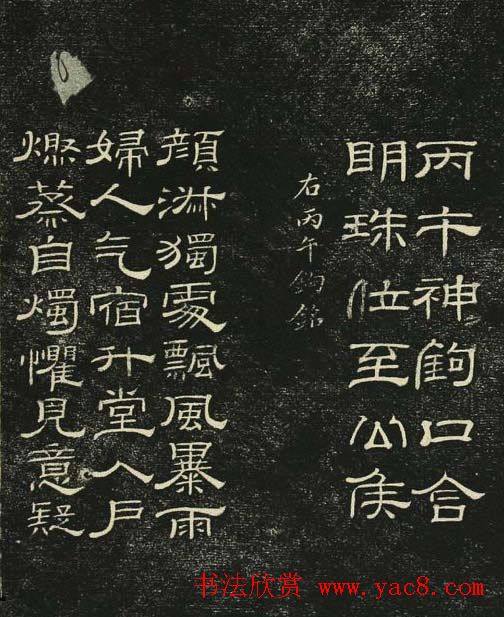 丙午神鉤口含
明珠位至公侯
右丙午鉤銘
顏淋獨處飄風暴雨
婦人乞宿升堂入戶
燃蒸自燭懼見意疑
书法欣赏 www.yac8.com